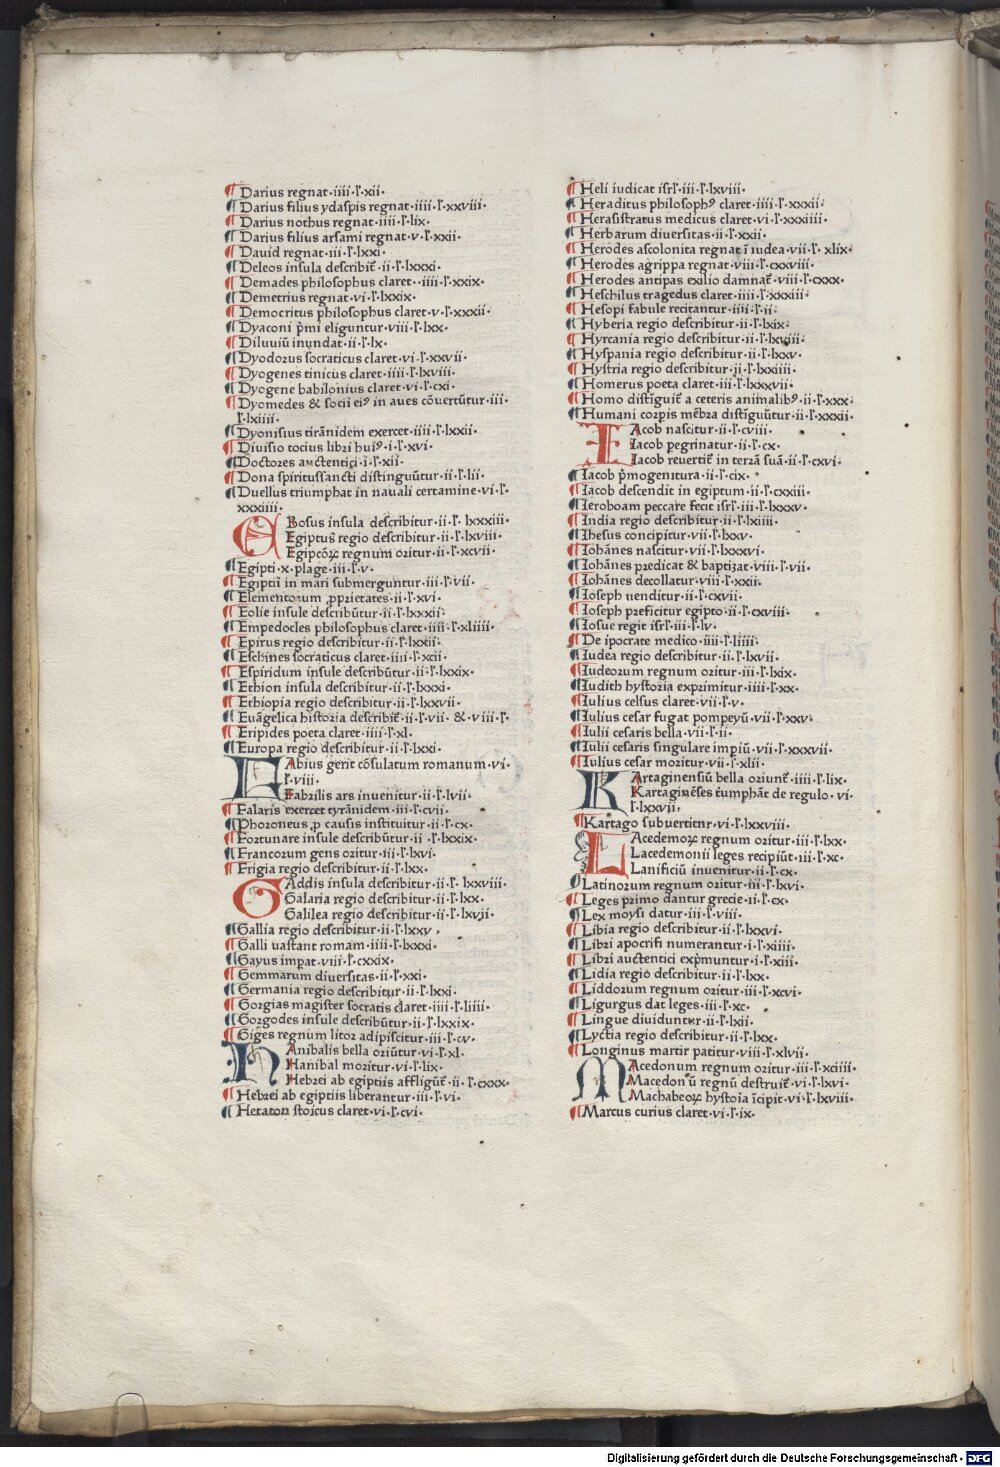 ¶Darius regnat·iiii·ſ·xii·
¶Darius filius ydaſpis regnat·iiii·ſ·xxviii·
¶Darius nothus regnat·iiii·ſ·lix·
¶Darius filius arſami regnat·v·ſ·xxii·
¶Dauid regnat·iii·ſ·lxxi·
¶Deleos inſula deſcribit̄·ii·ſ·lxxxi·
¶Demades philoſophus claret··iiii·ſ·xxix·
¶Demetrius regnat·vi·ſ·lxxix·
¶Democritus philoſophus claret·v·ſ·xxxii·
¶Dyaconi p̄mi eliguntur·viii·ſ·lxx·
¶Diluuiū inundat·ii·ſ·lx·
¶Dyodoꝛus ſocraticus claret·vi·ſ·xxvii·
¶Dyogenes tinicus claret·iiii·ſ·lxviii·
¶Dyogene babilonius claret·vi·ſ·cxi·
¶Dyomedes & ſocii eiꝰ in aues cōuertūtur·iii·
ſ·lxiiii·
¶Dyoniſius tirānidem exercet·iiii·ſ·lxxii·
¶Diuiſio tocius libri huiꝰ·i·ſ·xvi·
¶Doctoꝛes auctentici·i·ſ·xii·
¶Dona ſpirituſſancti diſtinguūtur·ii·ſ·lii·
¶Duellus triumphat in nauali certamine·vi·ſ·
xxxiiii·
EBoſus inſula deſcribitur·ii·ſ·lxxxiii·
Egiptus regio deſcribitur·ii·ſ·lxviii·
Egipcōꝝ regnum oꝛitur·ii·ſ·xcvii·
¶Egipti·x·plage·iii·ſ·v·
¶Egiptii in mari ſubmerguntur·iii·ſ·vii·
¶Elementoꝛum ꝓpꝛietates·ii·ſ·xvi·
¶Eolie inſule deſcribūtur·ii·ſ·lxxxii·
¶Empedocles philoſophus claret·iiii·ſ·xliiii·
¶Epirus regio deſcribitur·ii·ſ·lxxii·
¶Eſchines ſocraticus claret·iiii·ſ·xcii·
¶Eſpiridum inſule deſcribūtur·ii·ſ·lxxix·
¶Ethion inſula deſcribitur·ii·ſ·lxxxi·
¶Ethiopia regio deſcribitur·ii·ſ·lxxvii·
¶Euāgelica hiſtoꝛia deſcribit̄·ii·ſ·vii· & viii·ſ·
¶Eripides poeta claret·iiii·ſ·xl·
¶Europa regio deſcribitur·ii·ſ·lxxi·
FAbius gerit cōſulatum romanum·vi·
ſ·viii·
Fabꝛilis ars inuenitur·ii·ſ·lvii·
¶Falaris exercet tyrānidem·iii·ſ·cvii·
¶Phoꝛoneus ꝓ cauſis inſtituitur·ii·ſ·cx·
¶Foꝛtunare inſule deſcribūtur·ii·ſ·lxxix·
¶Francoꝛum gens oꝛitur·iii·ſ·lxvi·
¶Frigia regio deſcribitur·ii·ſ·lxx·
GAddis inſula deſcribitur·ii·ſ·lxxviii·
Galaria regio deſcribitur·ii·ſ·lxx·
Galilea regio deſcribitur·ii·ſ·lxvii·
¶Gallia regio deſcribitur·ii·ſ·lxxv·
¶Galli uaſtant romam·iiii·ſ·lxxxi·
¶Gayus impat·viii·ſ·cxxix·
¶Gemmarum diuerſitas·ii·ſ·xxi·
¶Germania regio deſcribitur·ii·ſ·lxxi·
¶Goꝛgias magiſter ſocratis claret·iiii·ſ·liiii·
¶Goꝛgodes inſule deſcribūtur·ii·ſ·lxxix·
¶Giges regnum litoꝛ adipiſcitur·iii·ſ·cv·
HAnibalis bella oꝛiūtur·vi·ſ·xl·
Hanibal moꝛitur·vi·ſ·lix·
Hebꝛei ab egiptiis affligūt̄·ii·ſ·cxxx·
¶Hebꝛei ab egiptiis liberantur·iii·ſ·vi·
¶Hetaron ſtoicus claret·vi·ſ·cvi·
¶Heli iudicat iſrl̄·iii·ſ·lxviii·
¶Heraditus philoſophꝰ claret·iiii·ſ·xxxii·
¶Heraſiſtratus medicus claret·vi·ſ·xxxiiii·
¶Herbarum diuerſitas·ii·ſ·xxii·
¶Herodes aſcolonita regnat ī iudea·vii·ſ·xlix·
¶Herodes agrippa regnat·viii·ſ·cxxviii·
¶Herodes antipas exilio damnat̄·viii·ſ·cxxx·
¶Heſchilus tragedus claret·iiii·ſ·xxxiii·
¶Heſopi fabule recitantur·iiii·ſ·ii·
¶Hyberia regio deſcribitur·ii·ſ·lxix·
¶Hyrcania regio deſcribitur·ii·ſ·lxviii·
¶Hyſpania regio deſcribitur·ii·ſ·lxxv·
¶Hyſtria regio deſcribitur·ii·ſ·lxxiiii·
¶Homerus poeta claret·iii·ſ·lxxxvii·
¶Homo diſtīguit̄ a ceteris animalibꝰ·ii·ſ·xxx·
¶Humani coꝛpis mēbꝛa diſtīguūtur·ii·ſ·xxxii·
IAcob naſcitur·ii·ſ·cviii·
Iacob pegrinatur·ii·ſ·cx·
Iacob reuertit̄ in terrā ſuā·ii·ſ·cxvi·
¶Iacob p̄mogenitura·ii·ſ·cix·
¶Iacob deſcendit in egiptum·ii·ſ·cxxiii·
¶Ieroboam peccare fecit iſrl̄·iii·ſ·lxxxv·
¶India regio deſcribitur·ii·ſ·lxiiii·
¶Iheſus concipitur·vii·ſ·lxxv·
¶Iohānes naſcitur·vii·ſ·lxxxvi·
¶Iohānes pꝛedicat & baptizat·viii·ſ·vii·
¶Iohānes decollatur·viii·ſ·xxii·
¶Ioſeph uenditur·ii·ſ·cxvii·
¶Ioſeph pꝛeficitur egipto·ii·ſ·cxviii·
¶Ioſue regit iſrl̄·iii·ſ·lv·
¶De ipocrate medico·iiii·ſ·liiii·
¶Iudea regio deſcribitur·ii·ſ·lxvii·
¶Iudeoꝛum regnum oꝛitur·iii·ſ·lxix·
¶Iudith hyſtoꝛia expꝛimitur·iiii·ſ·xx·
¶Iulius celſus claret·vii·ſ·v·
¶Iulius ceſar fugat pompeyū·vii·ſ·xxv·
¶Iulii ceſaris bella·vii·ſ·ii·
¶Iulii ceſaris ſingulare impiū·vii·ſ·xxxvii·
¶Iulius ceſar moꝛitur·vii·ſ·xlii·
KArtaginenſiū bella oꝛiunt̄·iiii·ſ·lix·
Kartaginēſes t̄umphāt de regulo·vi·
ſ·lxxvii·
¶Kartago ſubuertitur·vi·ſ·lxxviii·
LAcedemoꝝ regnum oꝛitur·iii·ſ·lxx·
Lacedemonii leges recipiūt·iii·ſ·xc·
Lanificiū inuenitur·ii·ſ·cx·
¶Latinoꝛum regnum oꝛitur·iii·ſ·lxvi·
¶Leges pꝛimo dantur grecie·ii·ſ·cx·
¶Lex moyſi datur·iii·ſ·viii·
¶Libia regio deſcribitur·ii·ſ·lxxvi·
¶Libꝛi apocrifi numerantur·i·ſ·xiiii·
¶Libꝛi auctentici exp̄muntur·i·ſ·xiii·
¶Lidia regio deſcribitur·ii·ſ·lxx·
¶Liddoꝛum regnum oꝛitur·iii·ſ·xcvi·
¶Ligurgus dat leges·iii·ſ·xc·
¶Lingue diuiduntur·ii·ſ·lxii·
¶Lyctia regio deſcribitur·ii·ſ·lxx·
¶Longinus martir patitur·viii·ſ·xlvii·
MAcedonum regnum oꝛitur·iii·ſ·xciiii·
Macedonū regnū deſtruit̄·vi·ſ·lxvi·
Machabeoꝝ hyſtoīa īcipit·vi·ſ·lxviii·
¶Marcus curius claret·vi·ſ·ix·
Digitalisierung gefördert durch die Deutsche Forschungsgemeinschaft - DFG